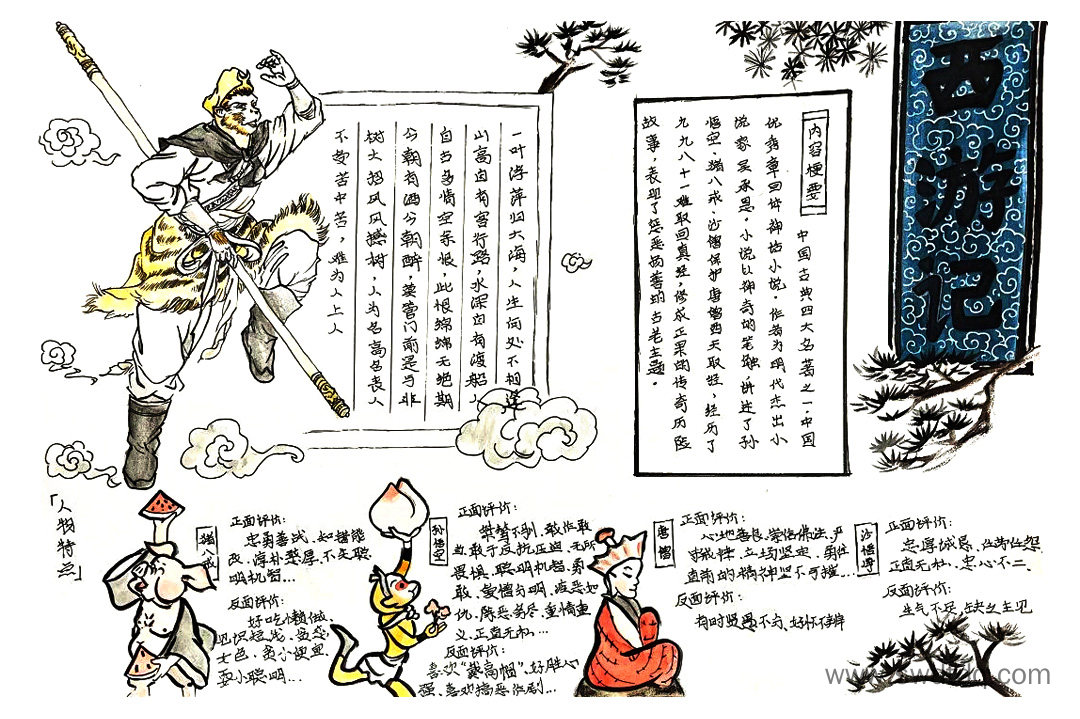 西游记
内容梗要
中国古典四大名著之一.中国
优秀章回体神话小说.作者为明代杰出小
说家吴承恩.小说以神奇的笔触,讲述了孙
悟空.猪八戒.沙僧保护唐僧西天取经,经历了
九九八十一难取回真经,修成正果的传奇历险
故事,表现了惩恶扬善的古老主题.
一叶浮萍归大海,人生何处不相逢
山高自有客行路,水深自有渡船人
自古多情空余恨,此恨绵绵无绝期
今朝有酒今朝醉,莫管门前是与非
树大招风风撼树,人为名高名丧人
不受苦中苦,难为人上人
「人物特点」
猪八戒
正面评价:
忠勇善战、知错能
改、淳朴憨厚、不失聪
明机智...
反面评价:
好吃懒做、
见识短浅、贪恋
女色、贪小便宜、
耍小聪明...
孙悟空
正面评价:
桀骜不驯、敢作敢
当、敢于反抗压迫、无所
畏惧、聪明机智、勇
敢、爱憎分明、疾恶如
仇、除恶务尽、重情重
义、正直无私...
反面评价:
喜欢"戴高帽"、好胜心
强、喜欢搞恶作剧...
唐僧
正面评价:
心地善良、崇信佛法、严
守戒律、立场坚定、勇往
直前的精神坚不可摧...
反面评价:
有时贤愚不分、好坏不辨
沙悟净
正面评价:
忠厚诚恳、任劳任怨
正直无私、忠心不二、
反面评价:
生气不足、缺乏主见